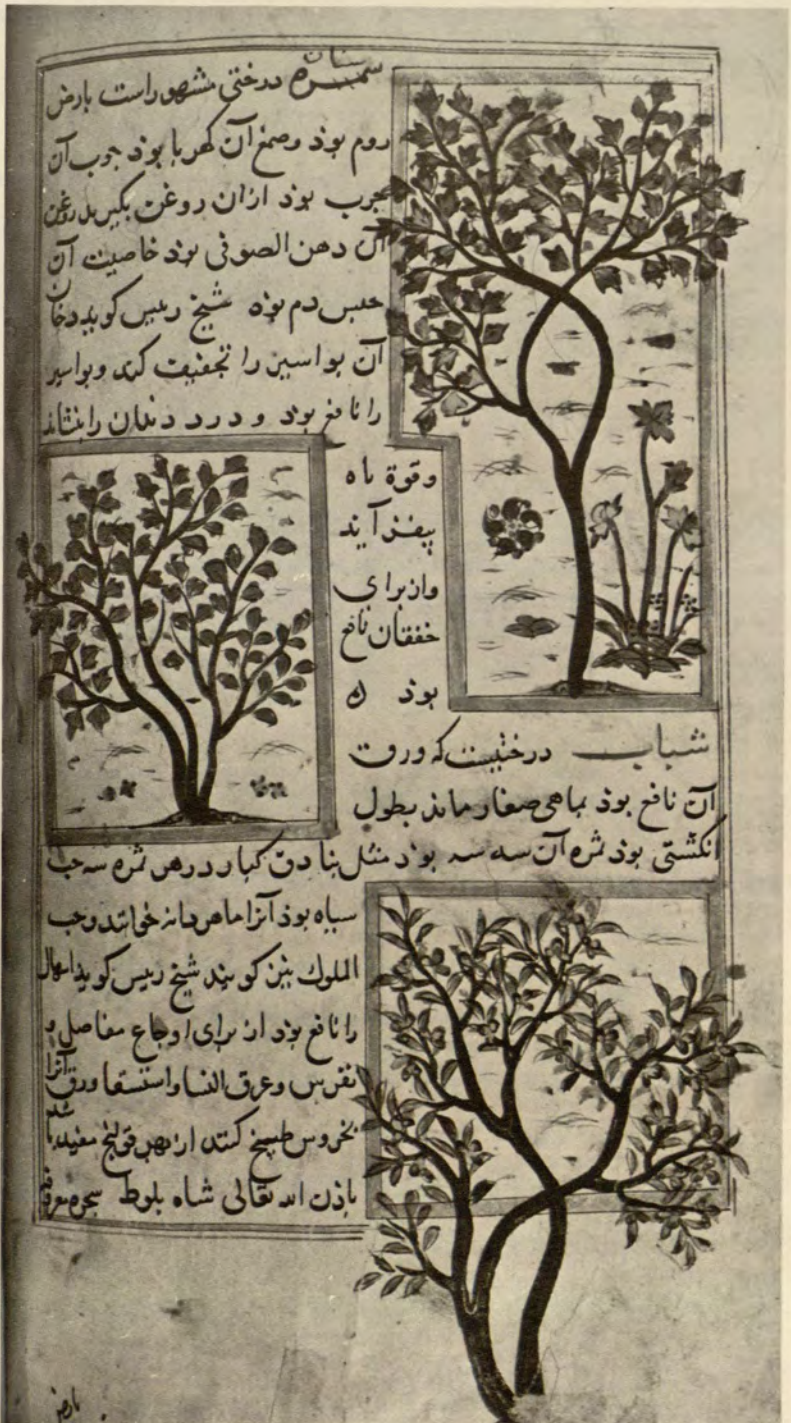 درختی مشهوراست بارض
روم بوذ وصمغ آن کهربا بوذ جوب آن
مجرب بوذ ازان روغن بکیرند روغن
آن دهن الصوفی بوذ خاصیت آن
حبس دم بوذ شیخ رییس کوید دخان
آن بواسیر را تجفیف کند وبواسیر
را نافع بوذ و درد دندان را بنشاند
وقوة باه
بیفزآید
واز برای
خفقان نافع
بوذ
شباب درختیست که ورق
آن نافع بوذ بماهی صغار ماند بطول
انکشتی بوذ ثمره آن سه سه بوذ مثل بنادق کبار در هر ثمره سه حب
سیاه بوذ آنرا ماهی دانه خوانند وحب
الملوک نیز کویند شیخ رییس کوید اسهال
را نافع بوذ از برای اوجاع مفاصل و
نقرس وعرق النسا واستسقا ورق آنرا
بخروس طبیخ کنند از بهر قولنج مفید
باذن الله تعالی شاه بلوط
بارض